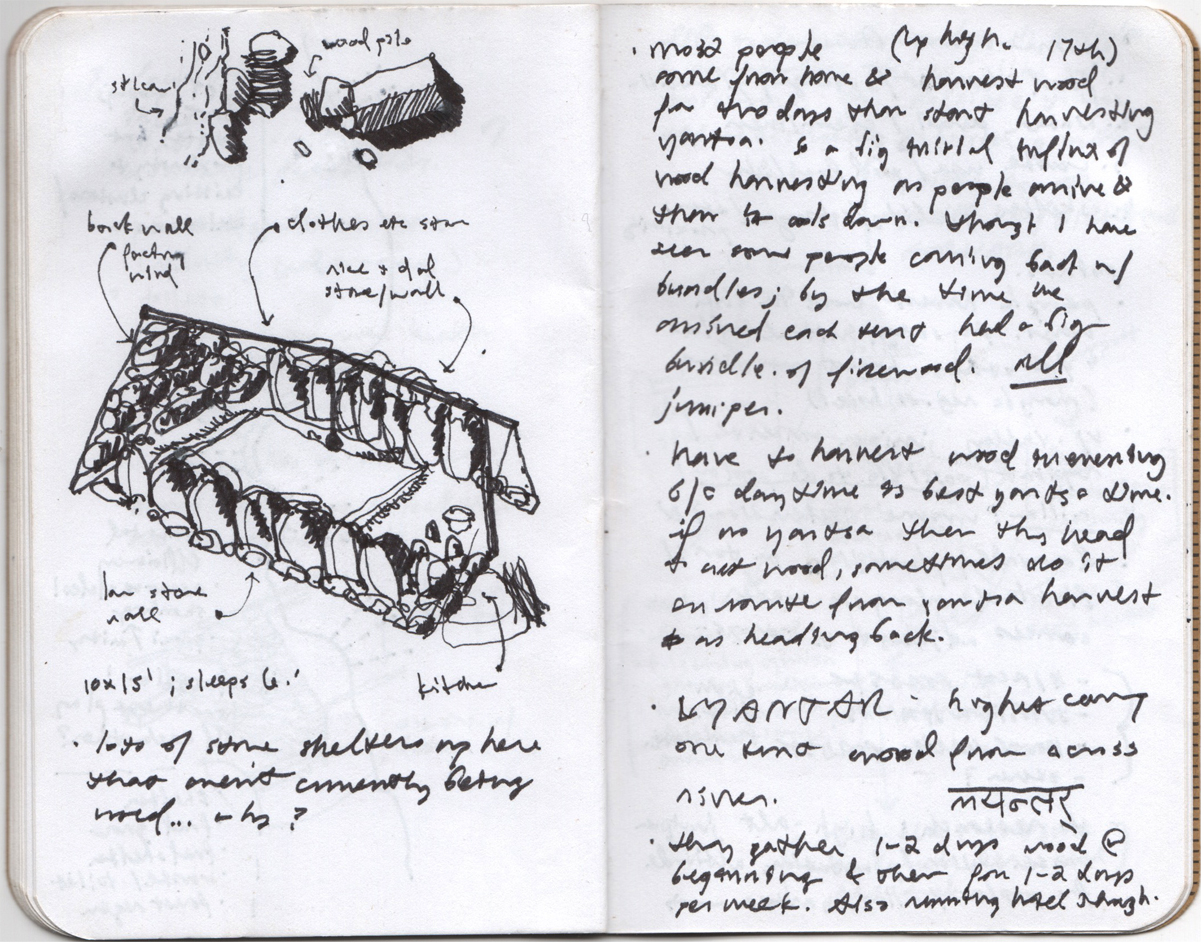 stream
wood pile
back wall
facing
wind
clothes etc store
rice + dal
store/wall
low stone
wall
kitchen
10x15'; sleeps 6.
· lots of stone shelters up here
that aren't currently being
used... why?
· most people (up high. 17th)
come from home & harvest wood
for two days then start harvesting
yartsa. is a big initial influx of
wood harvesting as people arrive &
then it cools down. though I have
seen some people coming back w/
bundles; by the time we
arrived each tent had a big
bundle of firewood. all
juniper.
· have to harvest wood in evening
b/c daytime is best yartsa time.
if no yartsa then they head
to cut wood, sometimes do it
en route from yartsa harvest
as heading back.
· highest camp
one tent wood from across
river.
· they gather 1-2 days wood @
beginning & then for 1-2 days
per week. Also running hotel though.